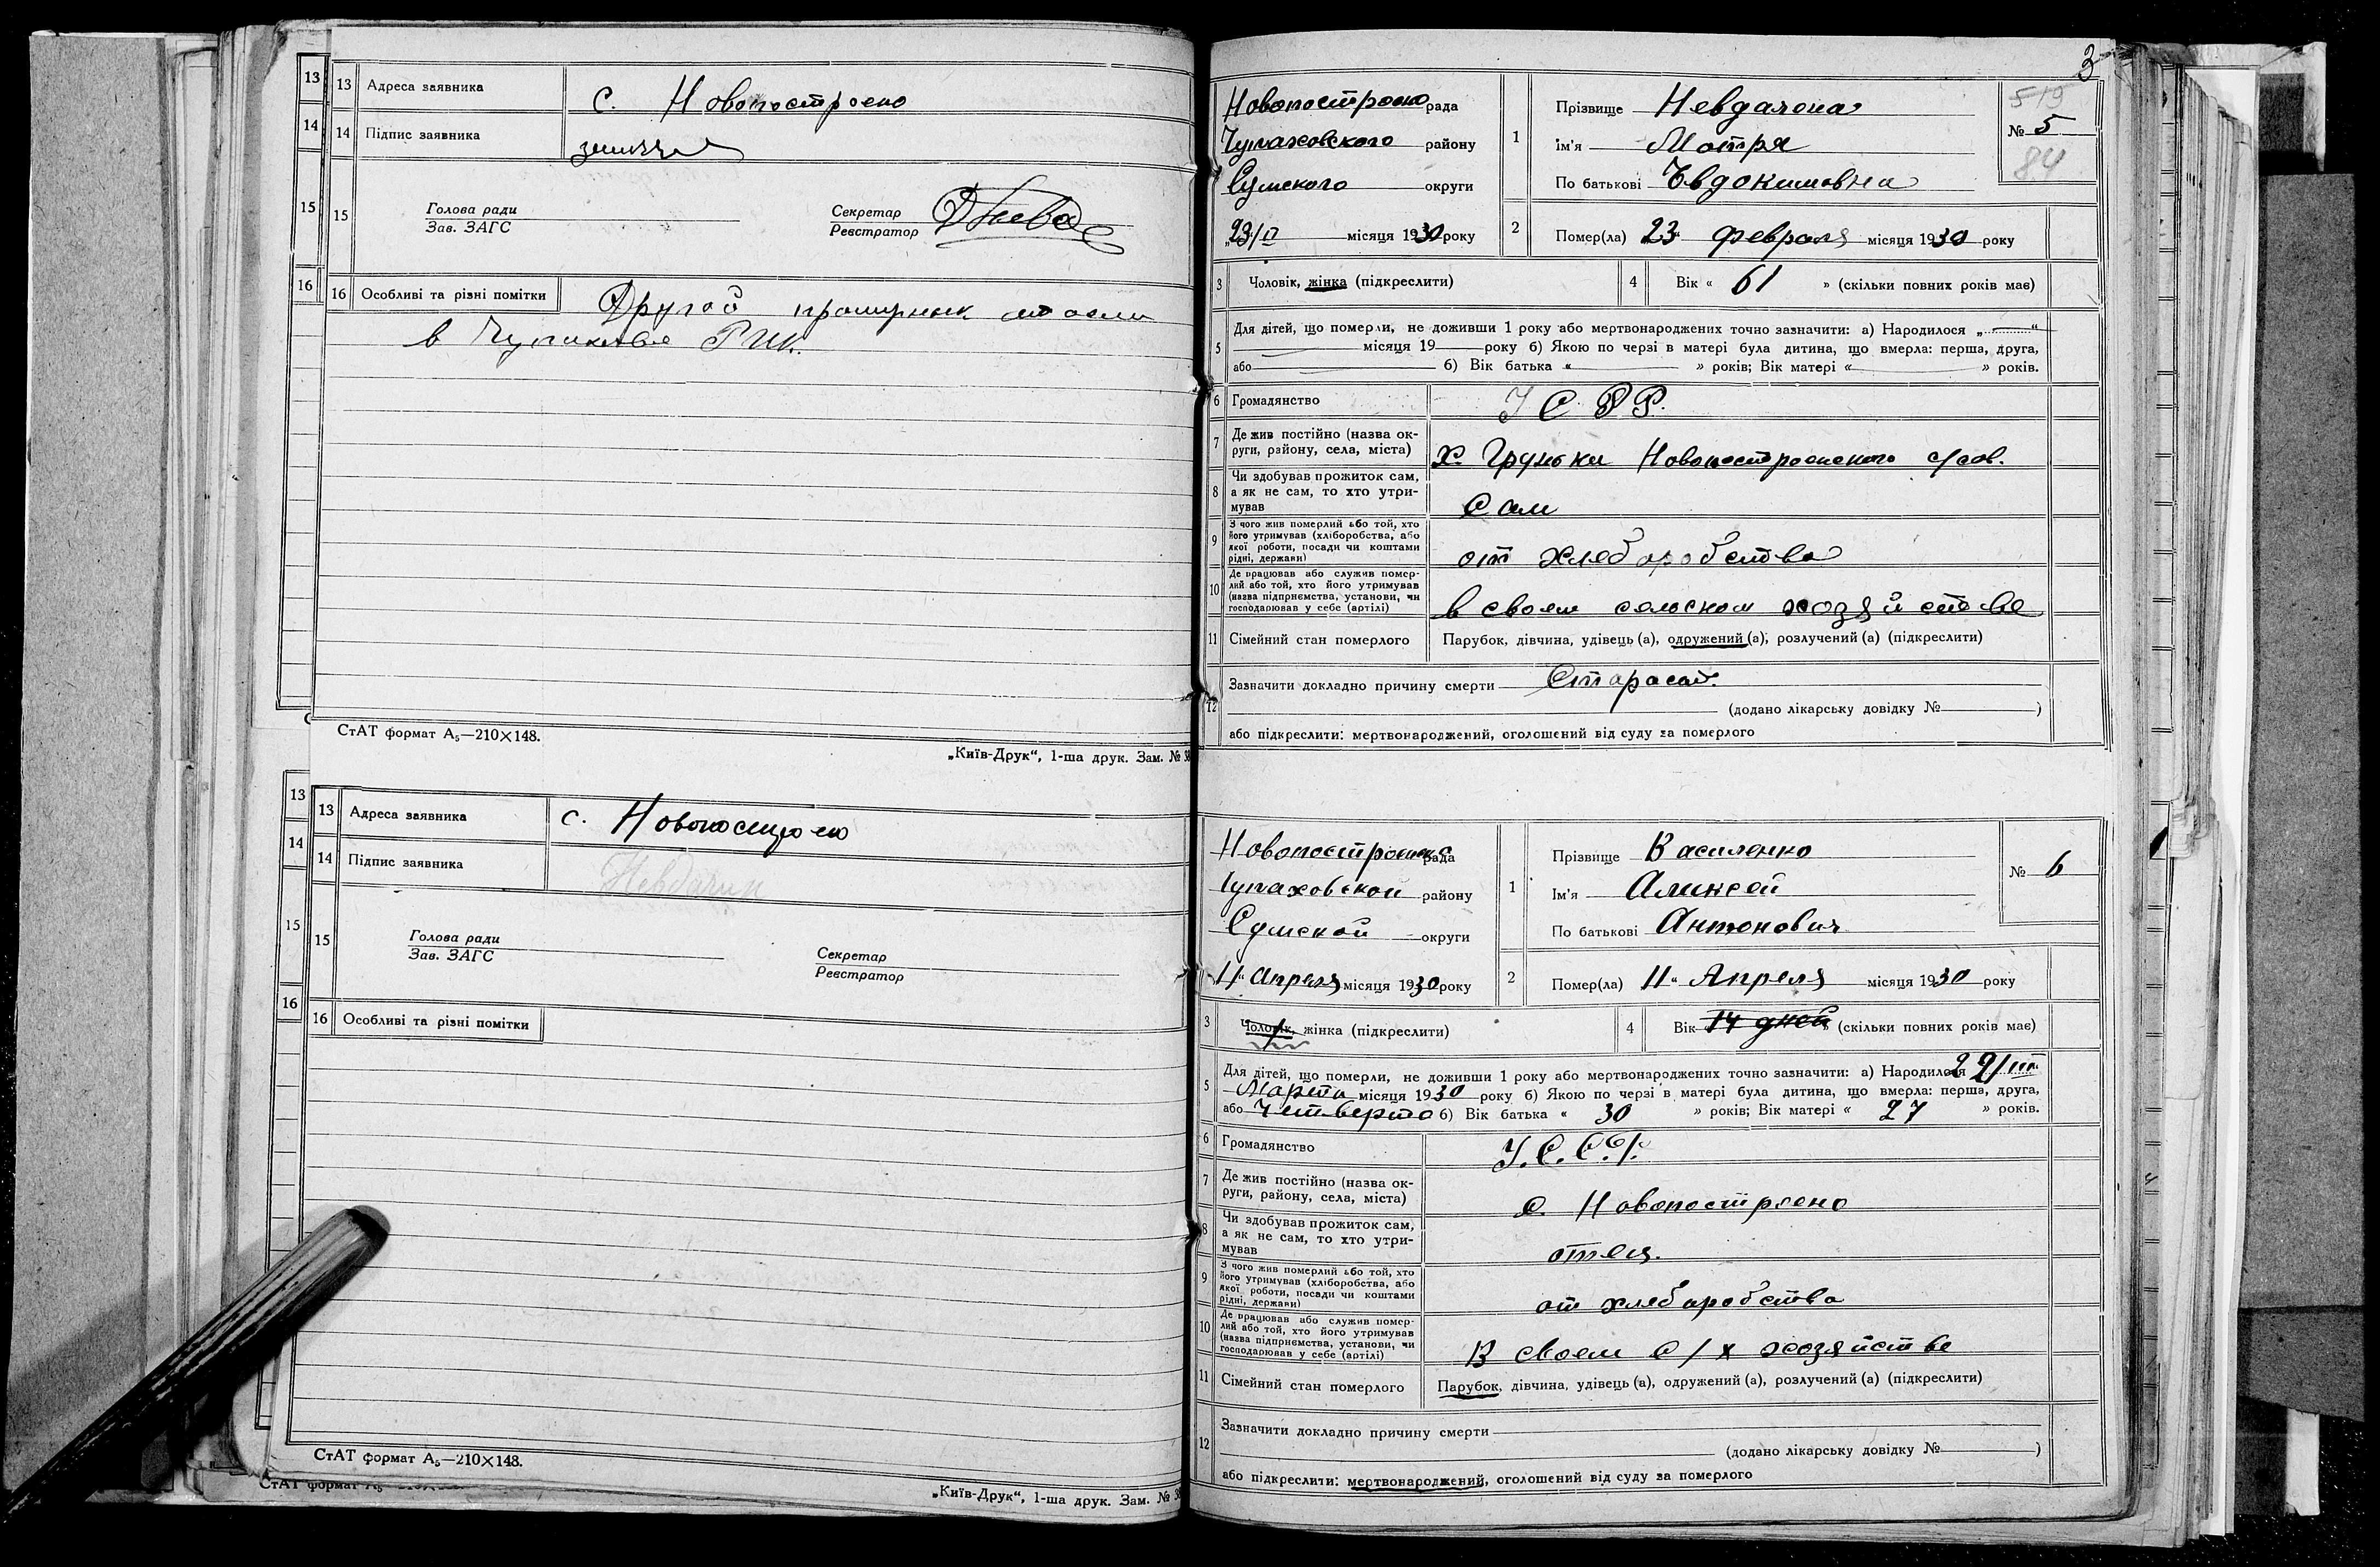 13 Адреса заявника с. Новопостроено
14 Підпис заявника
15 Голова ради
Зав. ЗАГС
Секретар
Реєстратор
16 Особливі та різні помітки Другой
в РИК.
СтАТ формат А₅—210×148.
„Київ-Друк“, 1-ша друк. Зам. № 38
13 Адреса заявника с. Новопостроено
14 Підпис заявника
15 Голова ради
Зав. ЗАГС
Секретар
Реєстратор
16 Особливі та різні помітки
СтАТ формат А₅—210×148.
„Київ-Друк“, 1-ша друк. Зам. № 38
3
Новопостроено рада
Чупаховского району
Сумского округи
„23/II місяця 1930 року
519
№ 5
84
1 Прізвище Невдачена
Ім'я Мотря
По батькові Євдокимовна
2 Помер(ла) 23 февраля місяця 1930 року
3 Чоловік, жінка (підкреслити)
4 Вік « 61 » (скільки повних років має)
5 Для дітей, що померли, не доживши 1 року або мертвонароджених точно зазначити: а) Народилося „ “
місяця 19 року б) Якою по черзі в матері була дитина, що вмерла: перша, друга,
або б) Вік батька « » років; Вік матері « » років.
6 Громадянство УСРР.
7 Де жив постійно (назва ок-
руги, району, села, міста) х. Груньки Новопостроенского с/сов.
8 Чи здобував прожиток сам,
а як не сам, то хто утри-
мував сам
9 З чого жив померлий або той, хто
його утримував (хліборобства, або
якої роботи, посади чи коштами
рідні, держави) от хлеборобства
10 Де працював або служив помер-
лий або той, хто його утримував
(назва підприємства, установи, чи
господарював у себе (артілі) в своем сельском хозяйстве
11 Сімейний стан померлого Парубок, дівчина, удівець (а), одружений (а), розлучений (а) (підкреслити)
12 Зазначити докладно причину смерти Старость.
(додано лікарську довідку № )
або підкреслити: мертвонароджений, оголошений від суду за померлого
Новопостроенс рада
Чупаховской району
Сумской округи
11“ Апреля місяця 1930 року
№ 6
1 Прізвище Василенко
Ім'я Аликсей
По батькові Антонович
2 Помер(ла) 11“ Апреля місяця 1930 року
3 Чоловік, жінка (підкреслити)
4 Вік 14 дней (скільки повних років має)
5 Для дітей, що померли, не доживши 1 року або мертвонароджених точно зазначити: а) Народилося 29/III
Марта місяця 1930 року б) Якою по черзі в матері була дитина, що вмерла: перша, друга,
або Четверто б) Вік батька « 30 » років; Вік матері « 27 » років.
6 Громадянство У.С.С.Р.
7 Де жив постійно (назва ок-
руги, району, села, міста) с. Новопостроено
8 Чи здобував прожиток сам,
а як не сам, то хто утри-
мував отец.
9 З чого жив померлий або той, хто
його утримував (хліборобства, або
якої роботи, посади чи коштами
рідні, держави) от хлеборобства
10 Де працював або служив помер-
лий або той, хто його утримував
(назва підприємства, установи, чи
господарював у себе (артілі) В своем с/х хозяйстве
11 Сімейний стан померлого Парубок, дівчина, удівець (а), одружений (а), розлучений (а) (підкреслити)
12 Зазначити докладно причину смерти
(додано лікарську довідку № )
або підкреслити: мертвонароджений, оголошений від суду за померлого